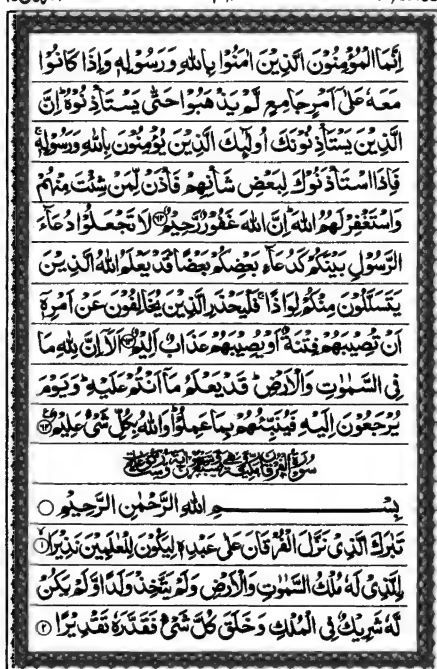 اِنَّمَا الْمُؤْمِنُوْنَ الَّذِيْنَ اٰمَنُوْا بِاللّٰهِ وَرَسُوْلِهٖ وَاِذَا كَانُوْا
مَعَهٗ عَلٰٓى اَمْرٍ جَامِعٍ لَّمْ يَذْهَبُوْا حَتّٰى يَسْتَاْذِنُوْهُ ؕ اِنَّ
الَّذِيْنَ يَسْتَاْذِنُوْنَكَ اُولٰٓئِكَ الَّذِيْنَ يُؤْمِنُوْنَ بِاللّٰهِ وَرَسُوْلِهٖ ۚ
فَاِذَا اسْتَاْذَنُوْكَ لِبَعْضِ شَاْنِهِمْ فَاْذَنْ لِّمَنْ شِئْتَ مِنْهُمْ
وَاسْتَغْفِرْ لَهُمُ اللّٰهَ ؕ اِنَّ اللّٰهَ غَفُوْرٌ رَّحِيْمٌ ﴿۶۲﴾ لَا تَجْعَلُوْا دُعَآءَ
الرَّسُوْلِ بَيْنَكُمْ كَدُعَآءِ بَعْضِكُمْ بَعْضًا ؕ قَدْ يَعْلَمُ اللّٰهُ الَّذِيْنَ
يَتَسَلَّلُوْنَ مِنْكُمْ لِوَاذًا ۚ فَلْيَحْذَرِ الَّذِيْنَ يُخَالِفُوْنَ عَنْ اَمْرِهٖٓ
اَنْ تُصِيْبَهُمْ فِتْنَةٌ اَوْ يُصِيْبَهُمْ عَذَابٌ اَلِيْمٌ ﴿۶۳﴾ اَلَآ اِنَّ لِلّٰهِ مَا
فِى السَّمٰوٰتِ وَالْاَرْضِ ؕ قَدْ يَعْلَمُ مَآ اَنْتُمْ عَلَيْهِ ؕ وَيَوْمَ
يُرْجَعُوْنَ اِلَيْهِ فَيُنَبِّئُهُمْ بِمَا عَمِلُوْا ؕ وَاللّٰهُ بِكُلِّ شَىْءٍ عَلِيْمٌ ﴿۶۴﴾
بِسْمِ اللّٰهِ الرَّحْمٰنِ الرَّحِيْمِ ○
تَبٰرَكَ الَّذِىْ نَزَّلَ الْفُرْقَانَ عَلٰى عَبْدِهٖ لِيَكُوْنَ لِلْعٰلَمِيْنَ نَذِيْرَا ﴿۱﴾
اِلَّذِىْ لَهٗ مُلْكُ السَّمٰوٰتِ وَالْاَرْضِ وَلَمْ يَتَّخِذْ وَلَدًا وَّلَمْ يَكُنْ
لَّهٗ شَرِيْكٌ فِى الْمُلْكِ وَخَلَقَ كُلَّ شَىْءٍ فَقَدَّرَهٗ تَقْدِيْرًا ﴿۲﴾